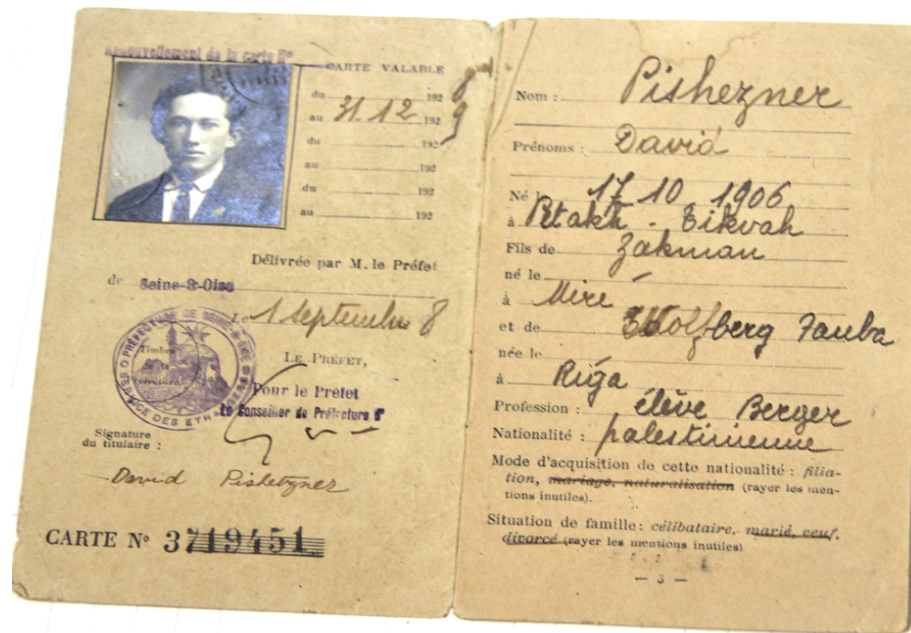 Renouvellement de la carte No
CARTE VALABLE
du 192 8
au 31.12 192 9
du 192
au 192
du 192
au 192
Délivrée par M. le Préfet
de Seine-&-Oise
Le 1 Septembre 8
LE PRÉFET,
Pour le Préfet
Le Conseiller de Préfecture
PRÉFECTURE DE SEINE-&-OISE
SERVICE DES ETRANGERS
Timbre
de la
Préfecture
Signature
du titulaire :
David Pishetzner
CARTE No 3719451
Nom : Pishezner
Prénoms : David
Né le 17 10 1906
à Petakh - Tikvah
Fils de Zakman
né le
à Miré
et de Wolfberg Tauba
née le
à Riga
Profession : élève Berger
Nationalité : palestinienne
Mode d'acquisition de cette nationalité : filia-
tion, mariage, naturalisation (rayer les men-
tions inutiles).
Situation de famille : célibataire, marié, veuf,
divorcé (rayer les mentions inutiles)
— 3 —